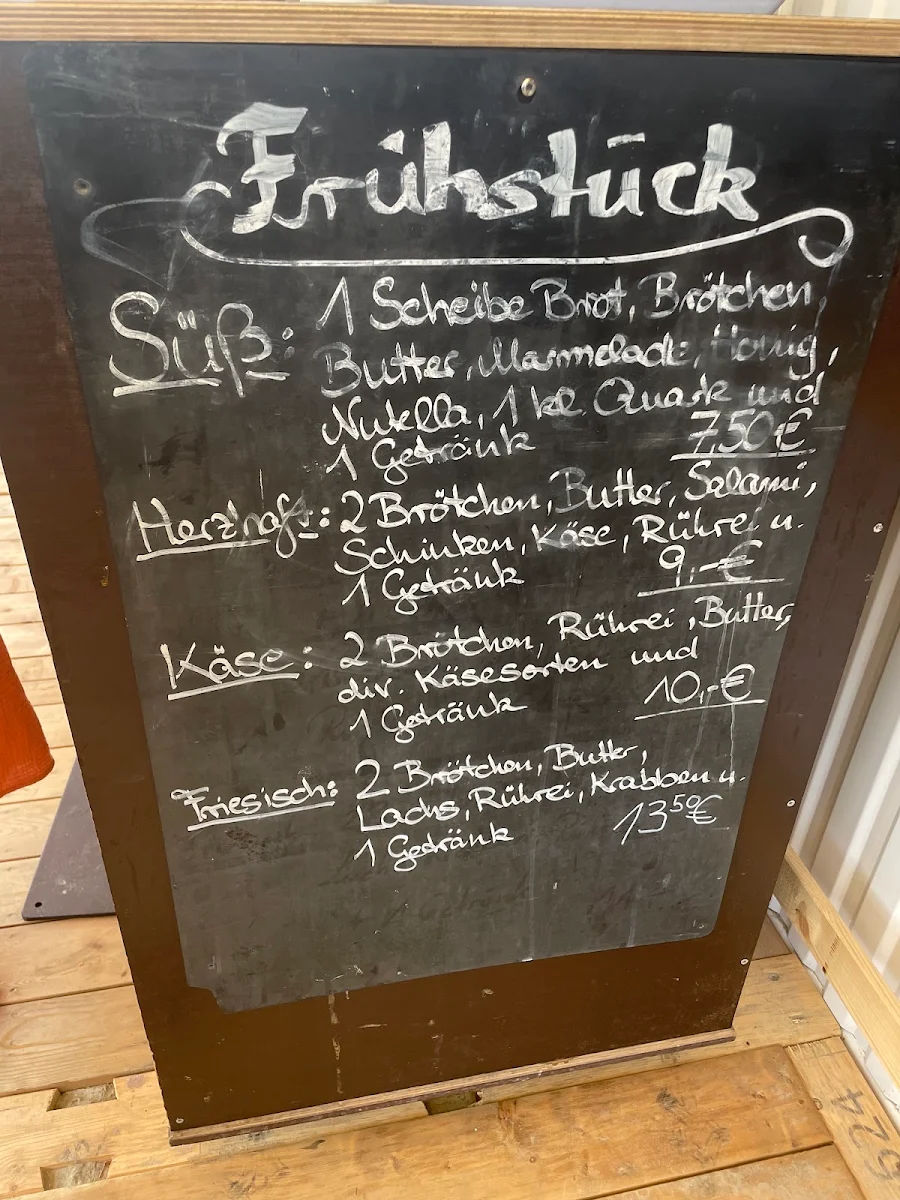 Frühstück
Süß: 1 Scheibe Brot, Brötchen,
Butter, Marmelade, Honig,
Nutella, 1 kl. Quark und
1 Getränk 7,50 €
Herzhaft: 2 Brötchen, Butter, Salami,
Schinken, Käse, Rührei u.
1 Getränk 9,-€
Käse: 2 Brötchen, Rührei, Butter,
div. Käsesorten und
1 Getränk 10,-€
Friesisch: 2 Brötchen, Butter,
Lachs, Rührei, Krabben u.
1 Getränk 13⁵⁰€
624